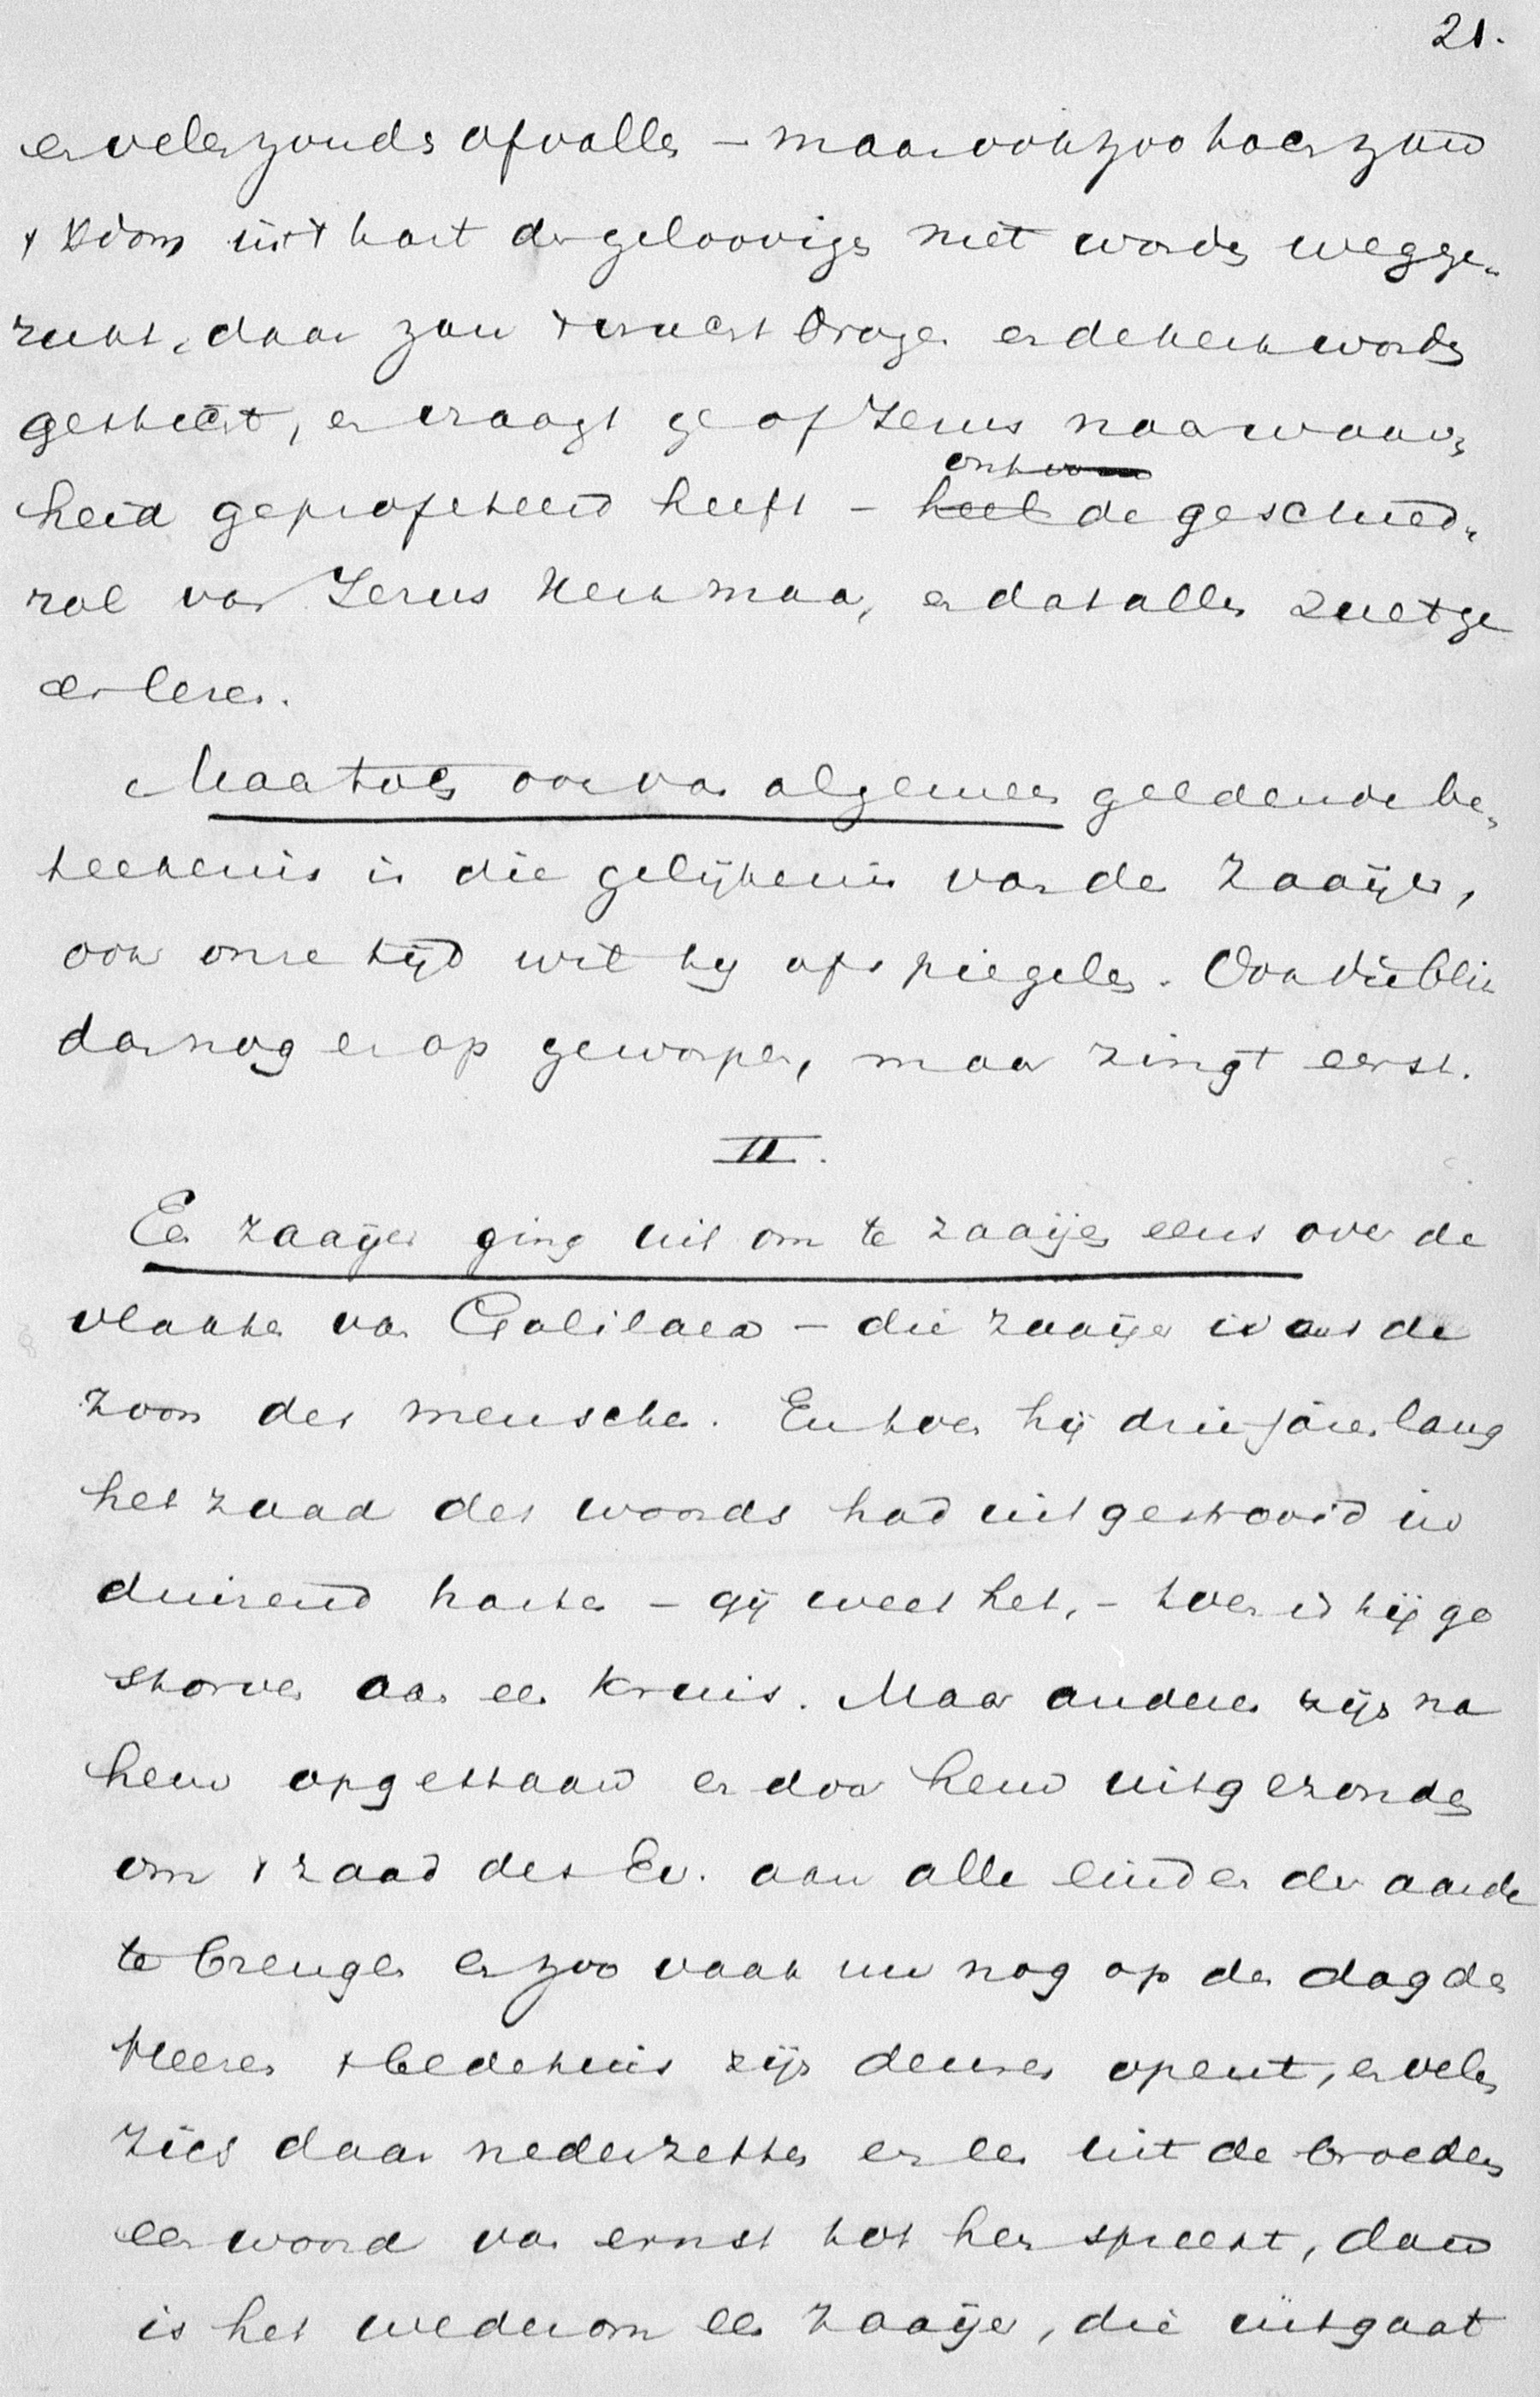 21.
en velen zoude afvallen – maar ook zoo hoever zou
't Woord uit 't hart der geloovigen niet worden wegge-
rukt, daar zou 't vrucht dragen en de kerk worden
gesticht, en vraagt ge of Jesus naar waar-
heid geprofeteerd heeft – de geschied-
rol van Jesus Kerk maar, en dat alles zult ge
er lezen.
Maar toch ook van algemeen geldende be-
teekenis is die gelijkenis van den Zaaijer,
ook onze tijd wil hij afspiegelen. Ook die blik
dan nog er op geworpen, maar zingt eerst.
II.
Een zaaijer ging uit om te zaaijen eens over de
vlakten van Galilaea – die zaaijer was de
zoon des menschen. En toen hij drie jaren lang
het zaad des woords had uitgestrooid in
duizend harten – gij weet het, – toen is hij ge
storven aan een kruis. Maar anderen zijn na
hem opgestaan en door hem uitgezonden
om 't zaad des Ev. aan alle einden der aarde
te brengen en zoo vaak nu nog op den dag des
Heeren 't bedehuis zijn deuren opent, en velen
zich daar nederzetten en een uit de broeders
een woord van ernst tot hen spreekt, dan
is het wederom een zaaijer, die uitgaat